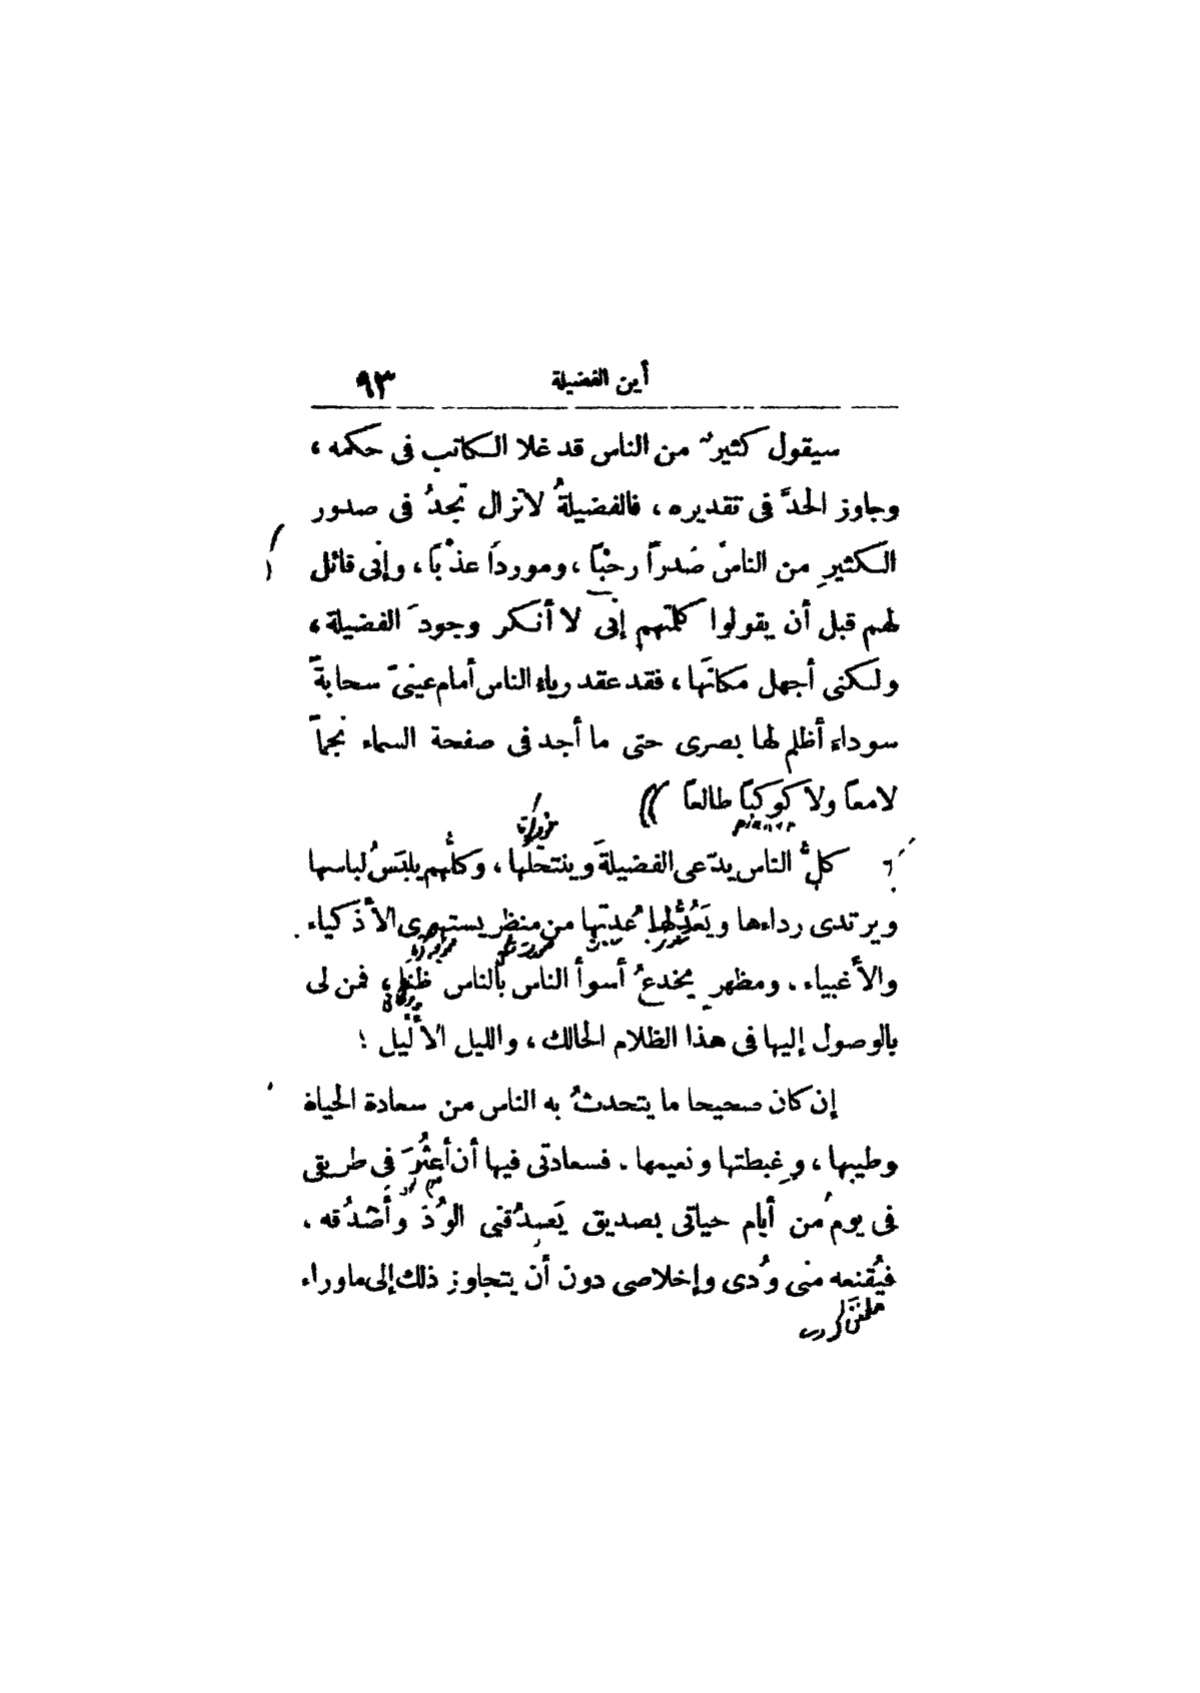 أين الفضيلة ٩٣
سيقول كثيرٌ من الناس قد غلا الكاتب فى حكمه ،
وجاوز الحدَّ فى تقديره ، فالفضيلةُ لا تزال تجدُ فى صدور
الكثيرِ من الناس صَدراً رحْباً ، وموردَا عذْبَا ، وإنى قائل
لهم قبل أن يقولوا كلمتهم إنى لا أنكر وجودَ الفضيلة ،
ولكنى أجهل مكانَها ، فقد عقد رياء الناس أمام عينىّ سحابةً
سوداء أظلم لها بصرى حتى ما أجد فى صفحة السماء نجماً
لامعاً ولا كوكباً طالعاً
كلُّ الناس يدّعى الفضيلةَ وينتحلُها ، وكلُّهم يلبَسُ لباسها
ويرتدى رداءها ويَعُدُّ لها عُدتها من منظر يستهوى الأذكياء
والأغبياء . ومظهرٍ يخدعُ أسوأ الناس بالناس ظنَّا ، فمن لى
بالوصول إليها فى هذا الظلام الحالك ، والليل الأليل ؛
إن كان صحيحا ما يتحدثُ به الناس من سعادة الحياة
وطيبها ، وغبطتها ونعيمها . فسعادتى فيها أن أعثُرَ فى طريقى
فى يوم من أيام حياتى بصديق يَصدُقنى الوُدَّ وأَصْدُقه ،
فيُقنعه منى وُدى وإخلاصى دون أن يتجاوز ذلك إلى ماوراء